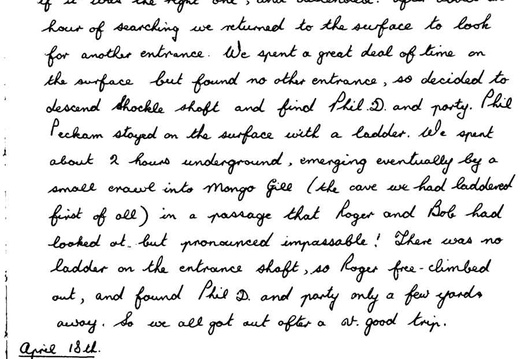 if it was the right one, and descended. After about an
hour of searching we returned to the surface to look
for another entrance. We spent a great deal of time on
the surface but found no other entrance, so decided to
descend Shockle shaft and find Phil.D. and party. Phil
Peckam stayed on the surface with a ladder. We spent
about 2 hours underground, emerging eventually by a
small crawl into Mongo Gill (the cave we had laddered
first of all) in a passage that Roger and Bob had
looked at but pronounced impassable! There was no
ladder on the entrance shaft, so Roger free-climbed
out, and found Phil D. and party only a few yards
away. So we all got out after a v. good trip.
April 18th.